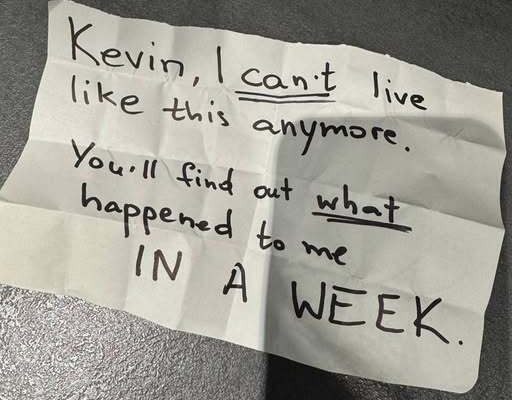 Kevin, I can't live
like this anymore.
You'll find out what
happened to me
IN A WEEK.